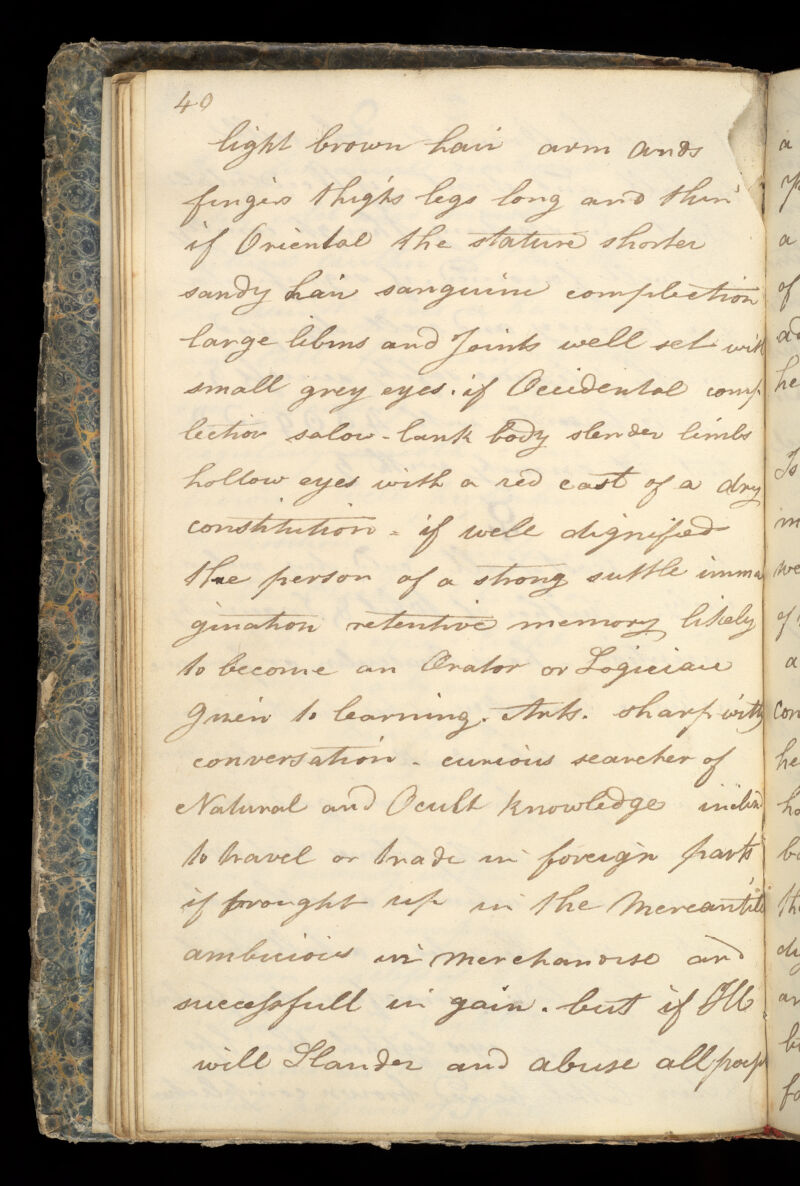 40
light brown hair arm ands
fingers thighs legs long and thin
if Oriental the stature shorter
sandy hair sanguine complection
large libms and Joints well set with
small grey eyes. if Occidental comp
lection salow - lank body slender limbs
hollow eyes with a red cast of a dry
constitution - if well dignified
the person of a strong suttle imma
gination retentive memory likely
to become an Orator or Logician
Given to learning. Arts. sharp witty
conversation - curious searcher of
Natural and Ocult knowledge inclin
to travel or trade in foreign parts
if brought up in the Mercantile
ambicious in merchandise and
successfull in gain. but if Ill
will Slander and abuse all
a
a
of
ad
he
Is
in
we
of
a
con
he
ho
be
th
di
an